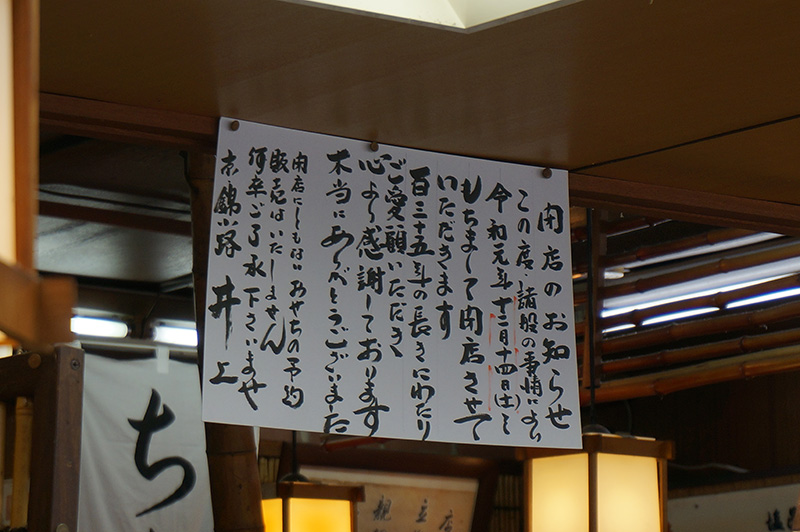 閉店のお知らせ
この度、諸般の事情により
令和元年十二月十四日(土)を
もちまして閉店させて
いただきます
百三十五年の長きにわたり
ご愛顧いただき
心より感謝しております
本当にありがとうございました
閉店にともない おせちの予約
販売はいたしません
何卒ご了承下さいませ
京・錦小路 井上
ち